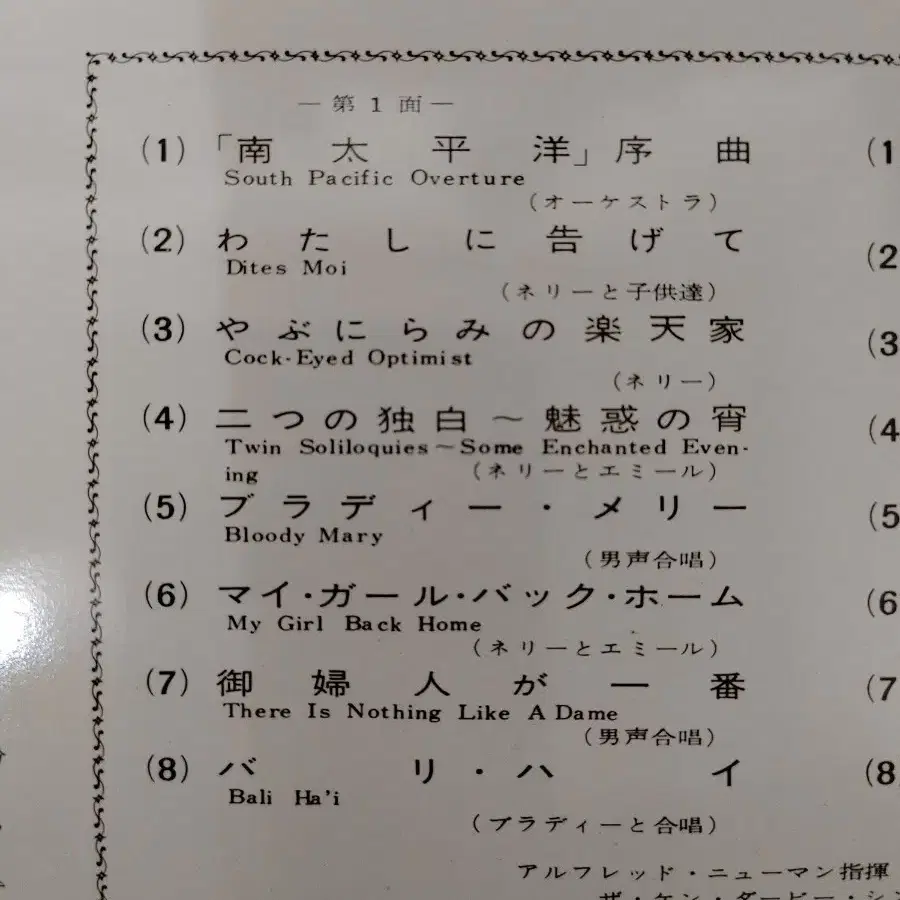 — 第 1 面 —
(1) 「南太平洋」序曲
South Pacific Overture
(オーケストラ)
(2) わたしに告げて
Dites Moi
(ネリーと子供達)
(3) やぶにらみの楽天家
Cock-Eyed Optimist
(ネリー)
(4) 二つの独白~魅惑の宵
Twin Soliloquies~Some Enchanted Even-
ing (ネリーとエミール)
(5) ブラディー・メリー
Bloody Mary
(男声合唱)
(6) マイ・ガール・バック・ホーム
My Girl Back Home
(ネリーとエミール)
(7) 御婦人が一番
There Is Nothing Like A Dame
(男声合唱)
(8) バリ・ハイ
Bali Ha'i
(ブラディーと合唱)
アルフレッド・ニューマン指揮
ザ・ケン・ダービー・シン
(1
(2
(3
(4
(5
(6
(7
(8